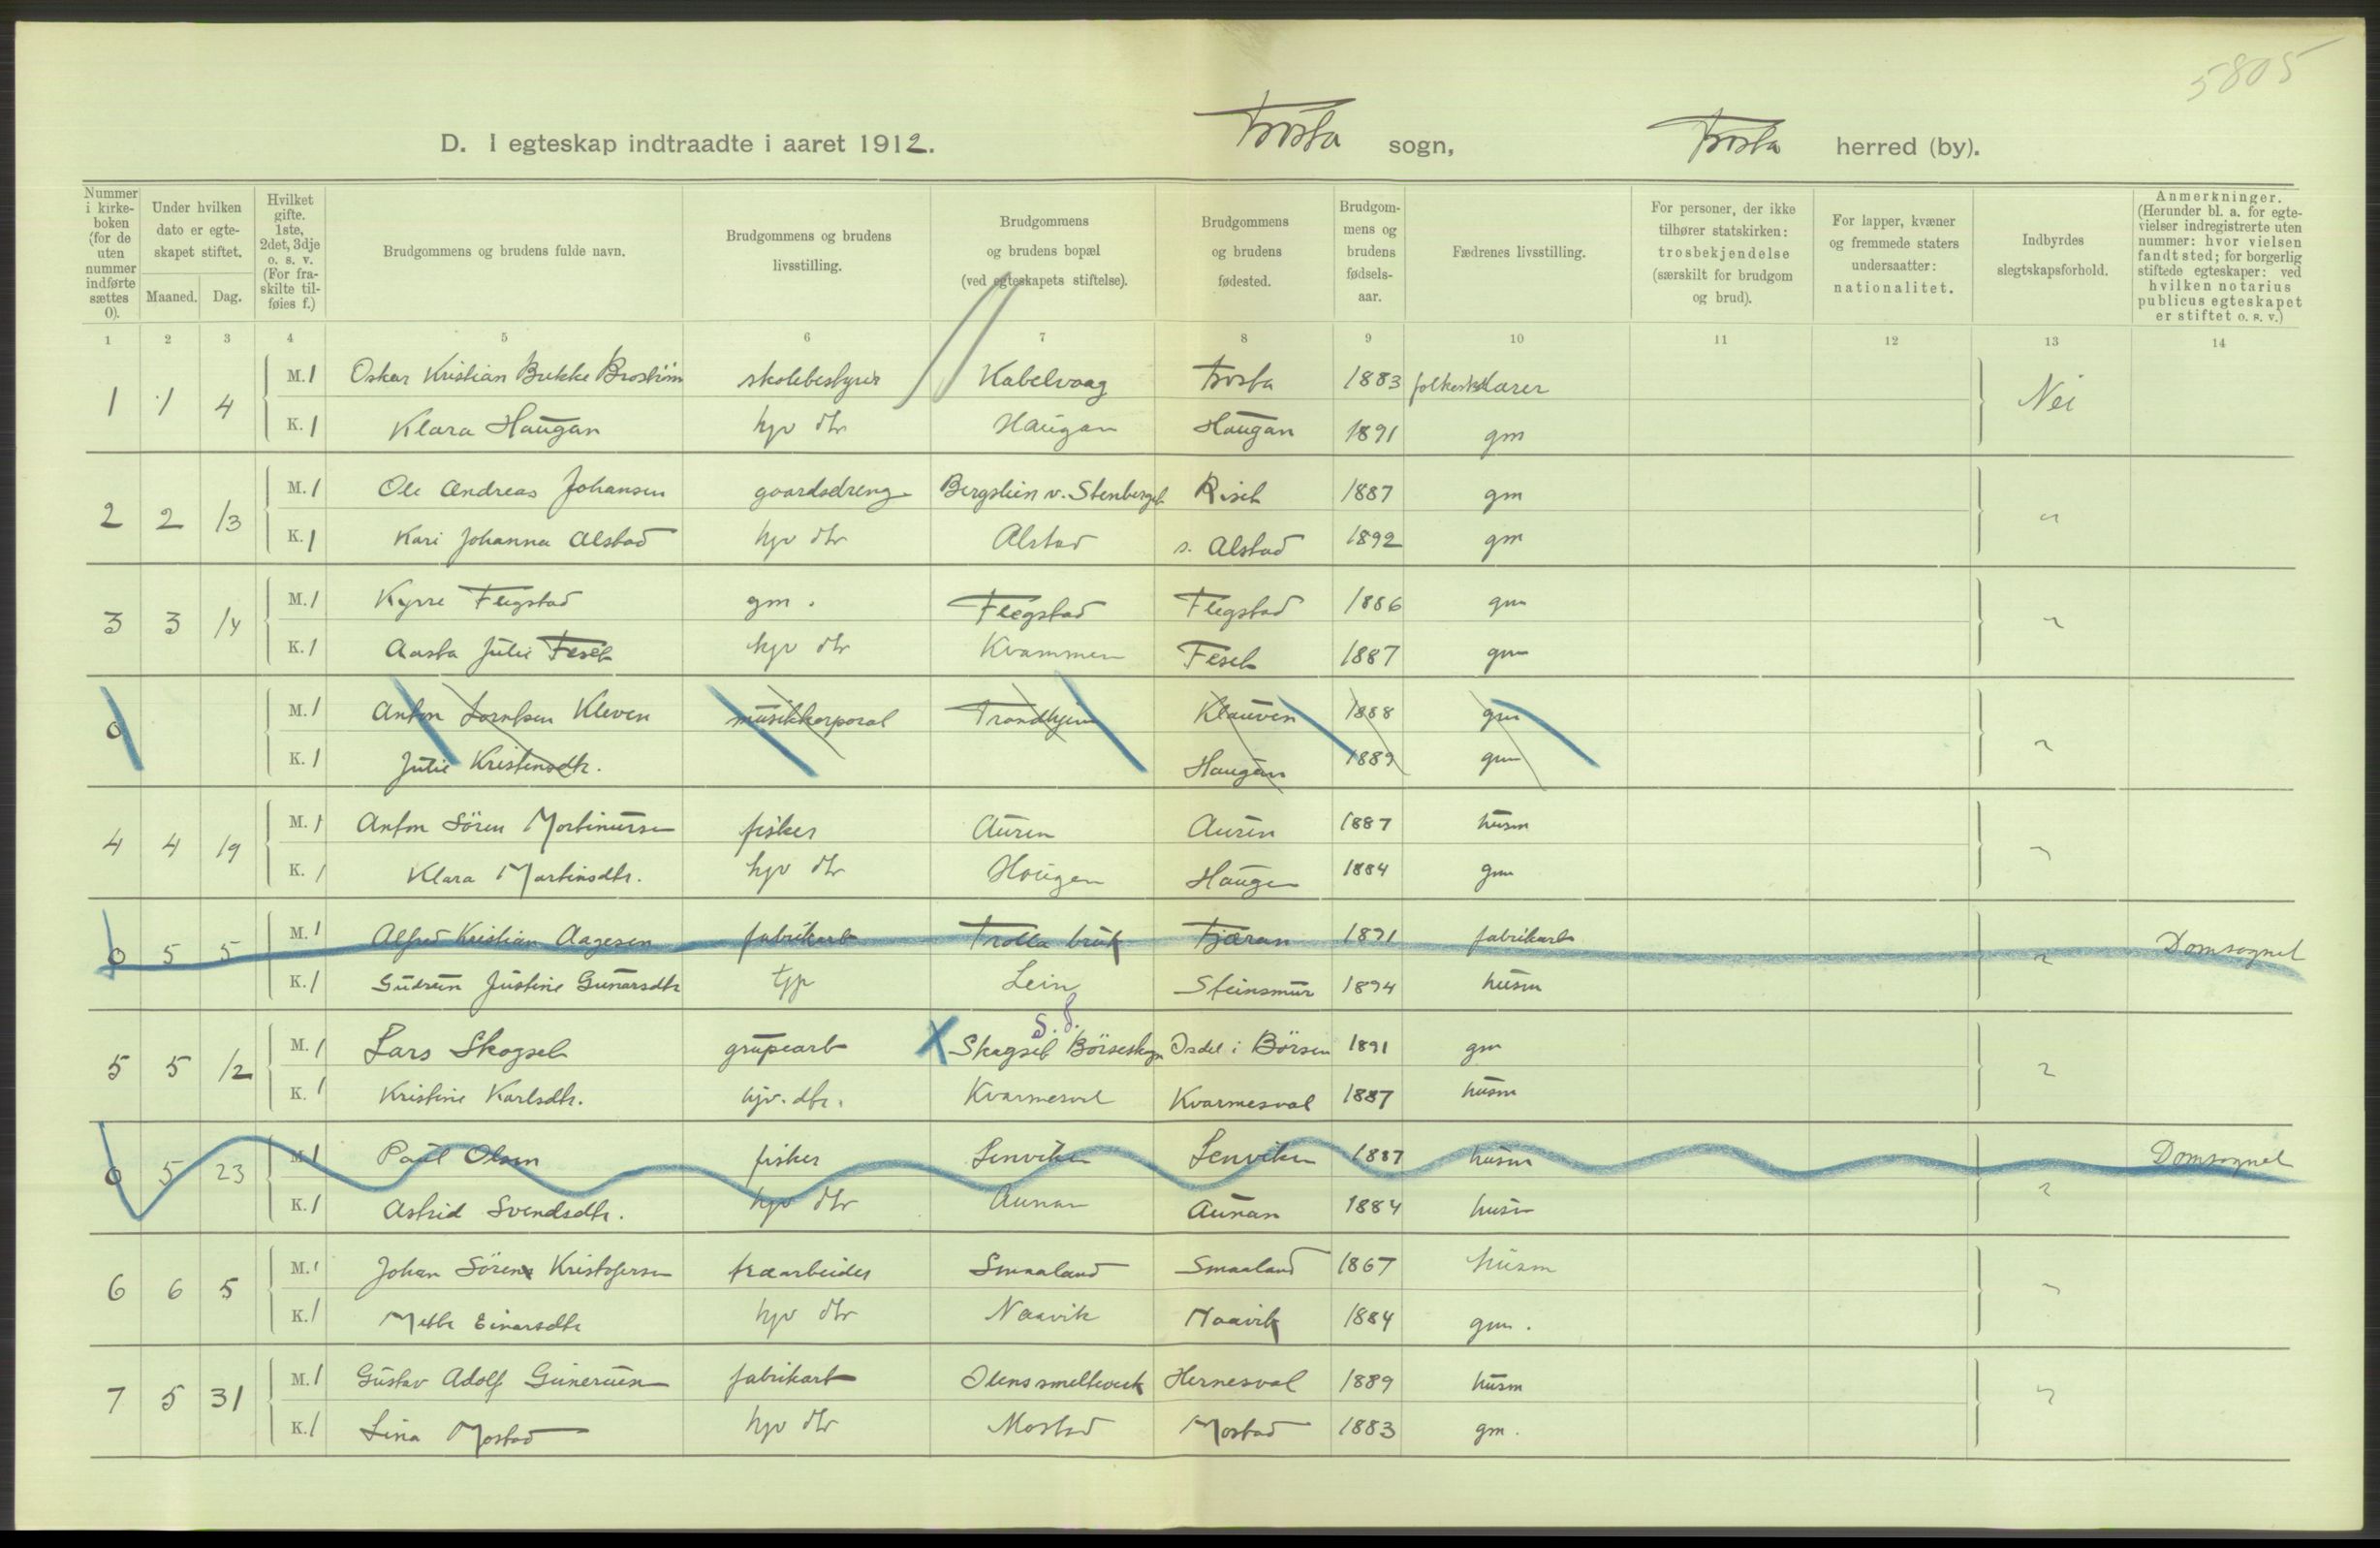 5805
D. I egteskap indtraadte i aaret 1912. Frosta sogn, Frosta herred (by).
Nummer i kirkeboken (for de uten nummer indførte sættes 0).
Under hvilken dato er egteskapet stiftet.
Maaned. Dag.
Hvilket gifte. 1ste, 2det, 3dje o. s. v. (For fraskilte tilføies f.)
Brudgommens og brudens fulde navn.
Brudgommens og brudens livsstilling.
Brudgommens og brudens bopæl (ved egteskapets stiftelse).
Brudgommens og brudens fødested.
Brudgommens og brudens fødselsaar.
Fædrenes livsstilling.
For personer, der ikke tilhører statskirken: trosbekjendelse (særskilt for brudgom og brud).
For lapper, kvæner og fremmede staters undersaatter: nationalitet.
Indbyrdes slegtskapsforhold.
Anmerkninger. (Herunder bl. a. for egtevielser indregistrerte uten nummer: hvor vielsen fandt sted; for borgerlig stiftede egteskaper: ved hvilken notarius publicus egteskapet er stiftet o. s. v.)
1 2 3 4 5 6 7 8 9 10 11 12 13 14
1 1 4 M. 1 Oskar Kristian Bukke Broström skolebestyrer Kabelvaag Frosta 1883 folkeskolelærer Nei
K. 1 Klara Haugan hjv dtr Haugan Haugan 1891 gm
2 2 13 M. 1 Ole Andreas Johansen gaardsdreng Bergslien v. Stenberget Riset 1887 gm "
K. 1 Kari Johanna Alstad hjv dtr Alstad s. Alstad 1892 gm
3 3 14 M. 1 Kyrre Flegstad gm. Flegstad Flegstad 1886 gm "
K. 1 Aasta Julie Feset hjv dtr Kvammen Feset 1887 gm
0 M. 1 Anton Lorntsen Kleven musikkorporal Trondhjem Klauven 1888 gm "
K. 1 Julie Kristensdtr. Haugan 1889 gm
4 4 19 M. 1 Anton Sören Mortinussen fisker Auren Auren 1887 husm "
K. 1 Klara Martinsdtr. hjv dtr Haugen Haugen 1884 gm
0 5 5 M. 1 Alfred Kristian Aagesen fabrikarb Trolla bruk Tjæran 1891 fabrikarb " Domsognet
K. 1 Gudrun Justine Gunarsdtr tjp Lein Steinsmur 1894 husm
S. d.
5 5 12 M. 1 Lars Skogset grupearb X Skogset Börseskogn Isdel i Börsen 1891 gm "
K. 1 Kristine Karlsdtr. hjv. dtr. Kvarmesval Kvarmesval 1887 husm
0 5 23 M 1 Paul Olsen fisker Lenviken Lenviken 1887 husm " Domsognet
K. 1 Astrid Svendsdtr. hjv dtr Aunan Aunan 1884 husm
6 6 5 M. 1 Johan Sören Kristofersen træarbeider Smaaland Smaaland 1867 husm "
K. 1 Mette Einarsdtr hjv dtr Naavik Naavik 1884 gm.
7 5 31 M. 1 Gustav Adolf Guneriusen fabrikarb Ilens smelteverk Hernesval 1889 husm "
K. 1 Lina Mostad hjv dtr Mostad Mostad 1883 gm.